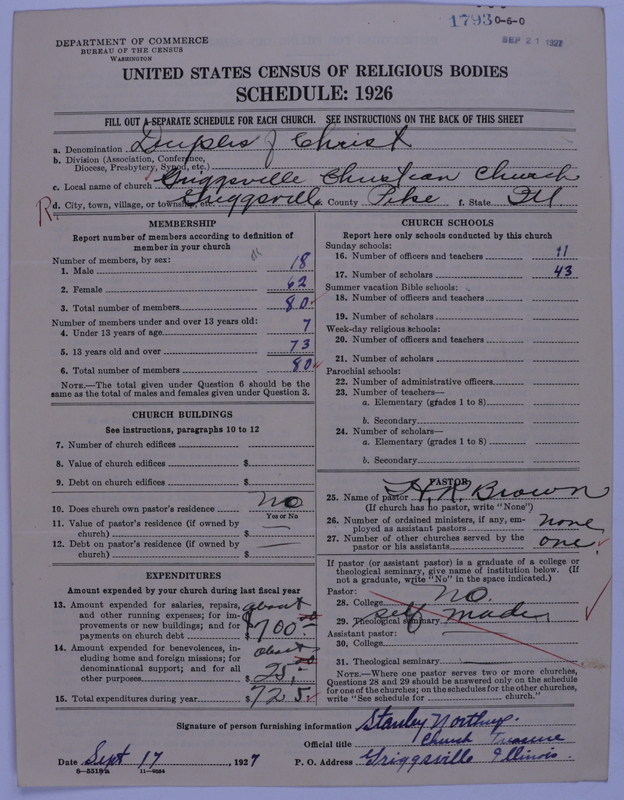 17930-6-0
SEP 21 1927
DEPARTMENT OF COMMERCE
BUREAU OF THE CENSUS
WASHINGTON
UNITED STATES CENSUS OF RELIGIOUS BODIES
SCHEDULE: 1926
FILL OUT A SEPARATE SCHEDULE FOR EACH CHURCH. SEE INSTRUCTIONS ON THE BACK OF THIS SHEET
a. Denomination Disciples of Christ
b. Division (Association, Conference,
Diocese, Presbytery, Synod, etc.)
c. Local name of church Griggsville Christian Church
R. d. City, town, village, or township, etc. Griggsville e. County Pike f. State Ill
MEMBERSHIP
Report number of members according to definition of
member in your church
Number of members, by sex:
1. Male 18
2. Female 62
3. Total number of members 80
Number of members under and over 13 years old:
4. Under 13 years of age 7
5. 13 years old and over 73
6. Total number of members 80
NOTE.—The total given under Question 6 should be the
same as the total of males and females given under Question 3.
CHURCH BUILDINGS
See instructions, paragraphs 10 to 12
7. Number of church edifices
8. Value of church edifices $
9. Debt on church edifices $
10. Does church own pastor's residence no
Yes or No
11. Value of pastor's residence (if owned by
church) $
12. Debt on pastor's residence (if owned by
church) $
EXPENDITURES
Amount expended by your church during last fiscal year
13. Amount expended for salaries, repairs, about
and other running expenses; for im-
provements or new buildings; and for
payments on church debt $700.00
14. Amount expended for benevolences, in- about
cluding home and foreign missions; for
denominational support; and for all
other purposes $25.00
15. Total expenditures during year $725.
CHURCH SCHOOLS
Report here only schools conducted by this church
Sunday schools:
16. Number of officers and teachers 11
17. Number of scholars 43
Summer vacation Bible schools:
18. Number of officers and teachers
19. Number of scholars
Week-day religious schools:
20. Number of officers and teachers
21. Number of scholars
Parochial schools:
22. Number of administrative officers
23. Number of teachers—
a. Elementary (grades 1 to 8)
b. Secondary
24. Number of scholars—
a. Elementary (grades 1 to 8)
b. Secondary
PASTOR
25. Name of pastor H. R. Brown
(If church has no pastor, write "None")
26. Number of ordained ministers, if any, em-
ployed as assistant pastors none
27. Number of other churches served by the
pastor or his assistants one
If pastor (or assistant pastor) is a graduate of a college or
theological seminary, give name of institution below. (If
not a graduate, write "No" in the space indicated.)
Pastor:
28. College no.
29. Theological seminary self made
Assistant pastor:
30. College
31. Theological seminary
NOTE.—Where one pastor serves two or more churches,
Questions 28 and 29 should be answered only on the schedule
for one of the churches; on the schedules for the other churches,
write "See schedule for church."
Signature of person furnishing information Stanley Northup.
Official title Church Treasure
Date Sept 17, 1927 P. O. Address Griggsville Illinois.
8-5518a 11-9084